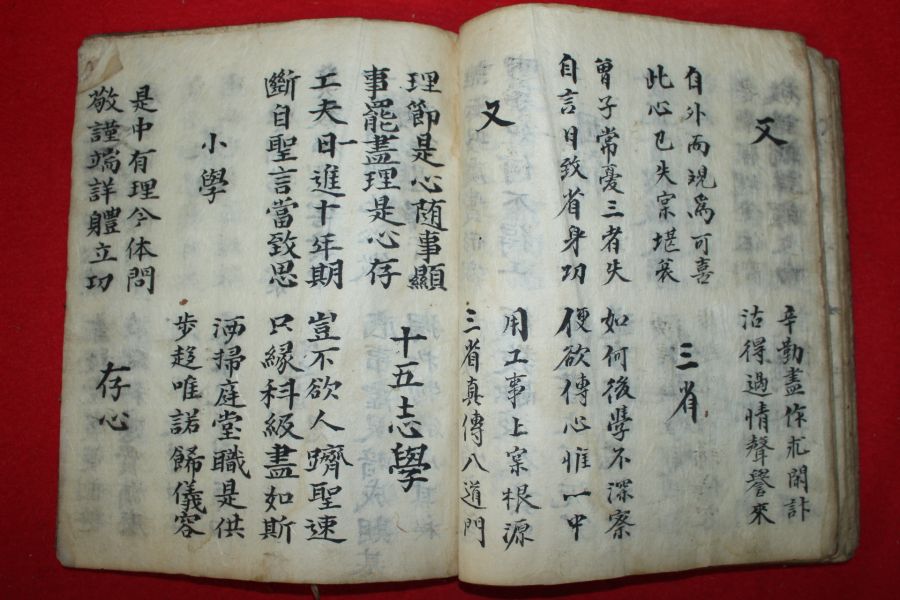 又
辛勤盡作求聞計
沽得過情聲譽來
自外而現爲可喜
此心已失宲堪哀
三省
曾子常憂三者失
自言日致省身功
如何後學不深察
便欲傳心惟一中
又
用工事上宲根源
三省真傳入道門
理節是心随事顯
事罷盡理是心存
十五志學
工夫日進十年期
斷自聖言當致思
豈不欲人躋聖速
只緣科級盡如斯
小學
洒掃庭堂職是供
步趍唯諾歸儀容
是中有理今体問
敬謹端詳體立功
存心